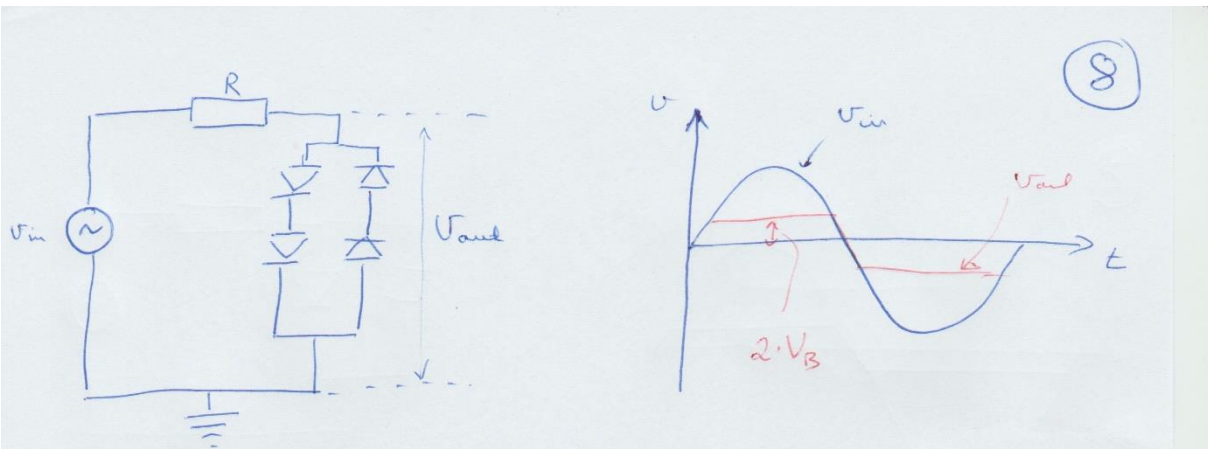 R
Vin
Vout
8
v
Vin
Vout
t
2·VB